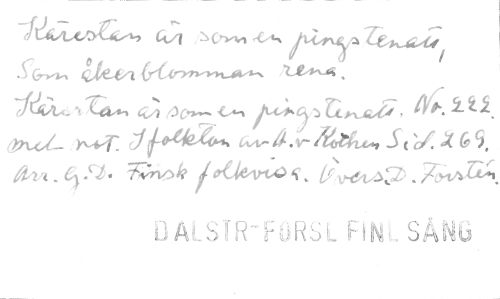 Kärestan är som en pingstenatt,
Som åkerblomman rena.
Kärestan är som en pingstenatt. No. 222.
med not. I folkton av A. v Kothen Sid. 269.
Arr. G. D. Finsk folkvisa. Övers. D. Forstén.
DALSTR-FORSL FINL SÅNG